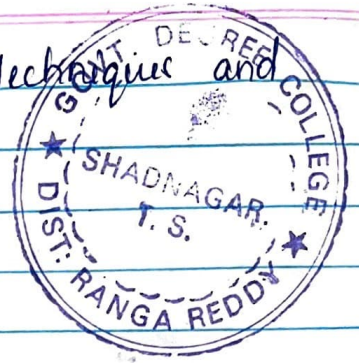 Techniques and
GOVT DEGREE COLLEGE
SHADNAGAR.
T. S.
DIST: RANGA REDDY